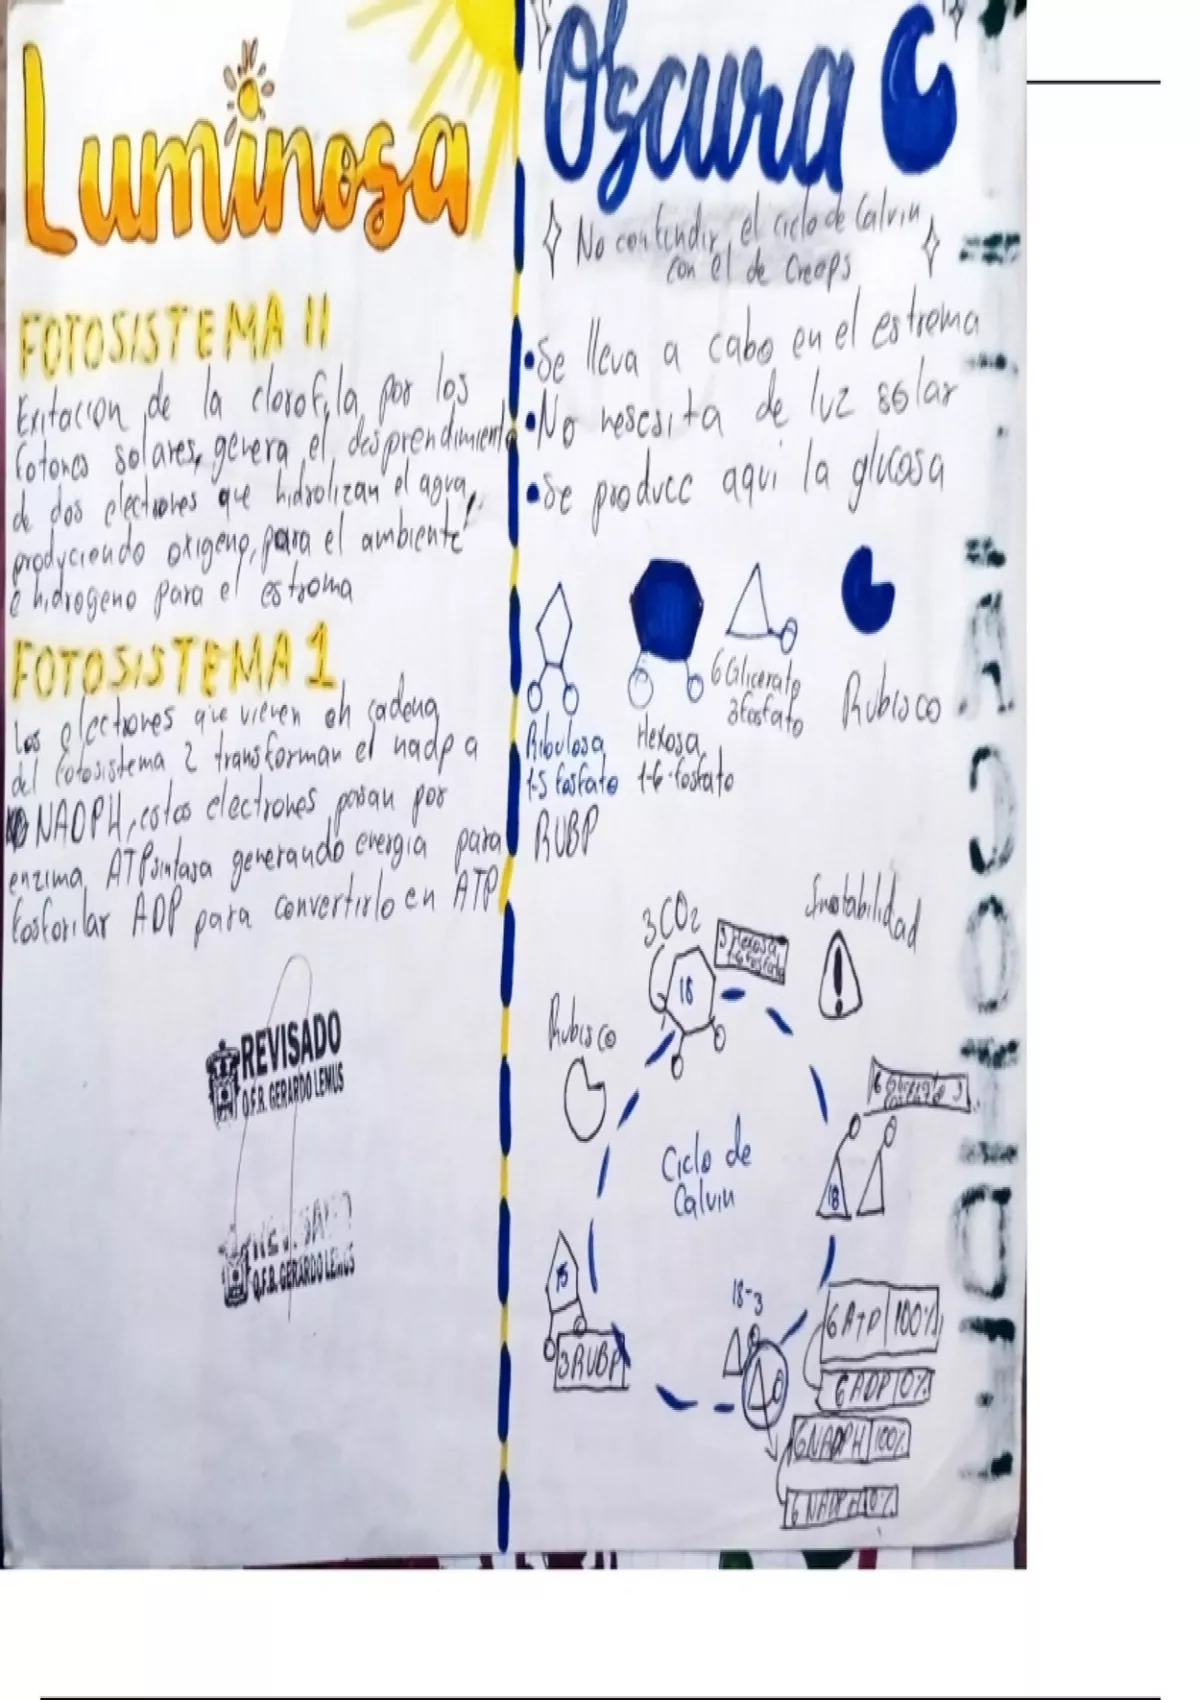 Luminosa
FOTOSISTEMA II
Exitacion de la clorofila por los
fotones solares, genera el desprendimiento
de dos electrones que hidrolizan el agua,
produciendo oxigeno, para el ambiente
e hidrogeno para el estroma
FOTOSISTEMA 1
Los electrones que vienen en cadena
del fotosistema 2 transforman el nadp a
NADPH, estos electrones pasan por
enzima ATPsintasa generando energia para
fosforilar ADP para convertirlo en ATP
REVISADO
Q.F.B. GERARDO LEMUS
Q.F.B. GERARDO LEMUS
Obscura
No contundir el ciclo de Calvin
con el de Creeps
•Se lleva a cabo en el estrema
•No nescsita de luz solar
•Se produce aqui la glucosa
Ribulosa
1-5 fosfato
RUBP
Hexosa
1-6-fosfato
6 Glicerato
3fosfato
Rubisco
3CO2
3 Hexosa
1-6 fosfato
18
Inestabilidad
Rubisco
6 Glicerato 3
fosfato
Ciclo de
Calvin
18
15
3RUBP
18-3
6 ATP 100%
6 ADP 0%
6NADPH 100%
6 NADPH 0%